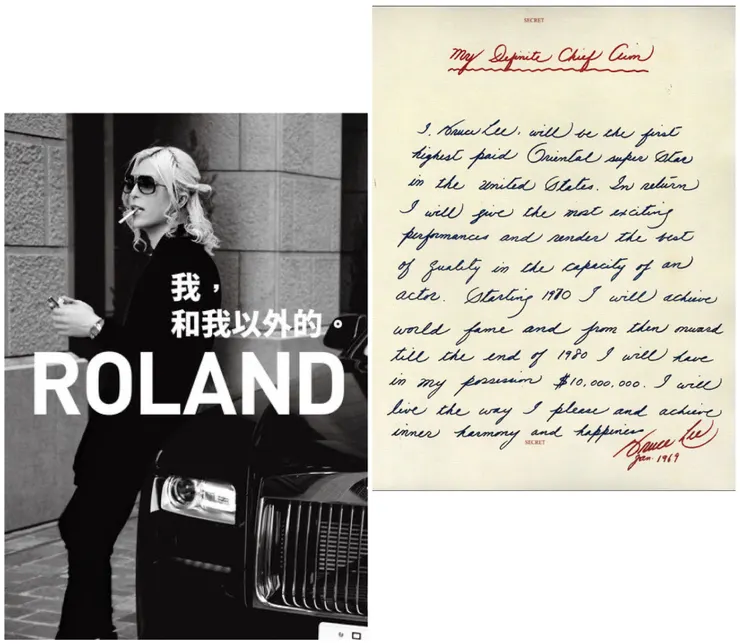 我，
和我以外的。
ROLAND
SECRET
My Definite Chief Aim
I, Bruce Lee, will be the first
highest paid Oriental super star
in the United States. In return
I will give the most exciting
performances and render the best
of quality in the capacity of an
actor. Starting 1970 I will achieve
world fame and from then onward
till the end of 1980 I will have
in my possession $10,000,000. I will
live the way I please and achieve
inner harmony and happiness
SECRET
Bruce Lee
Jan. 1969